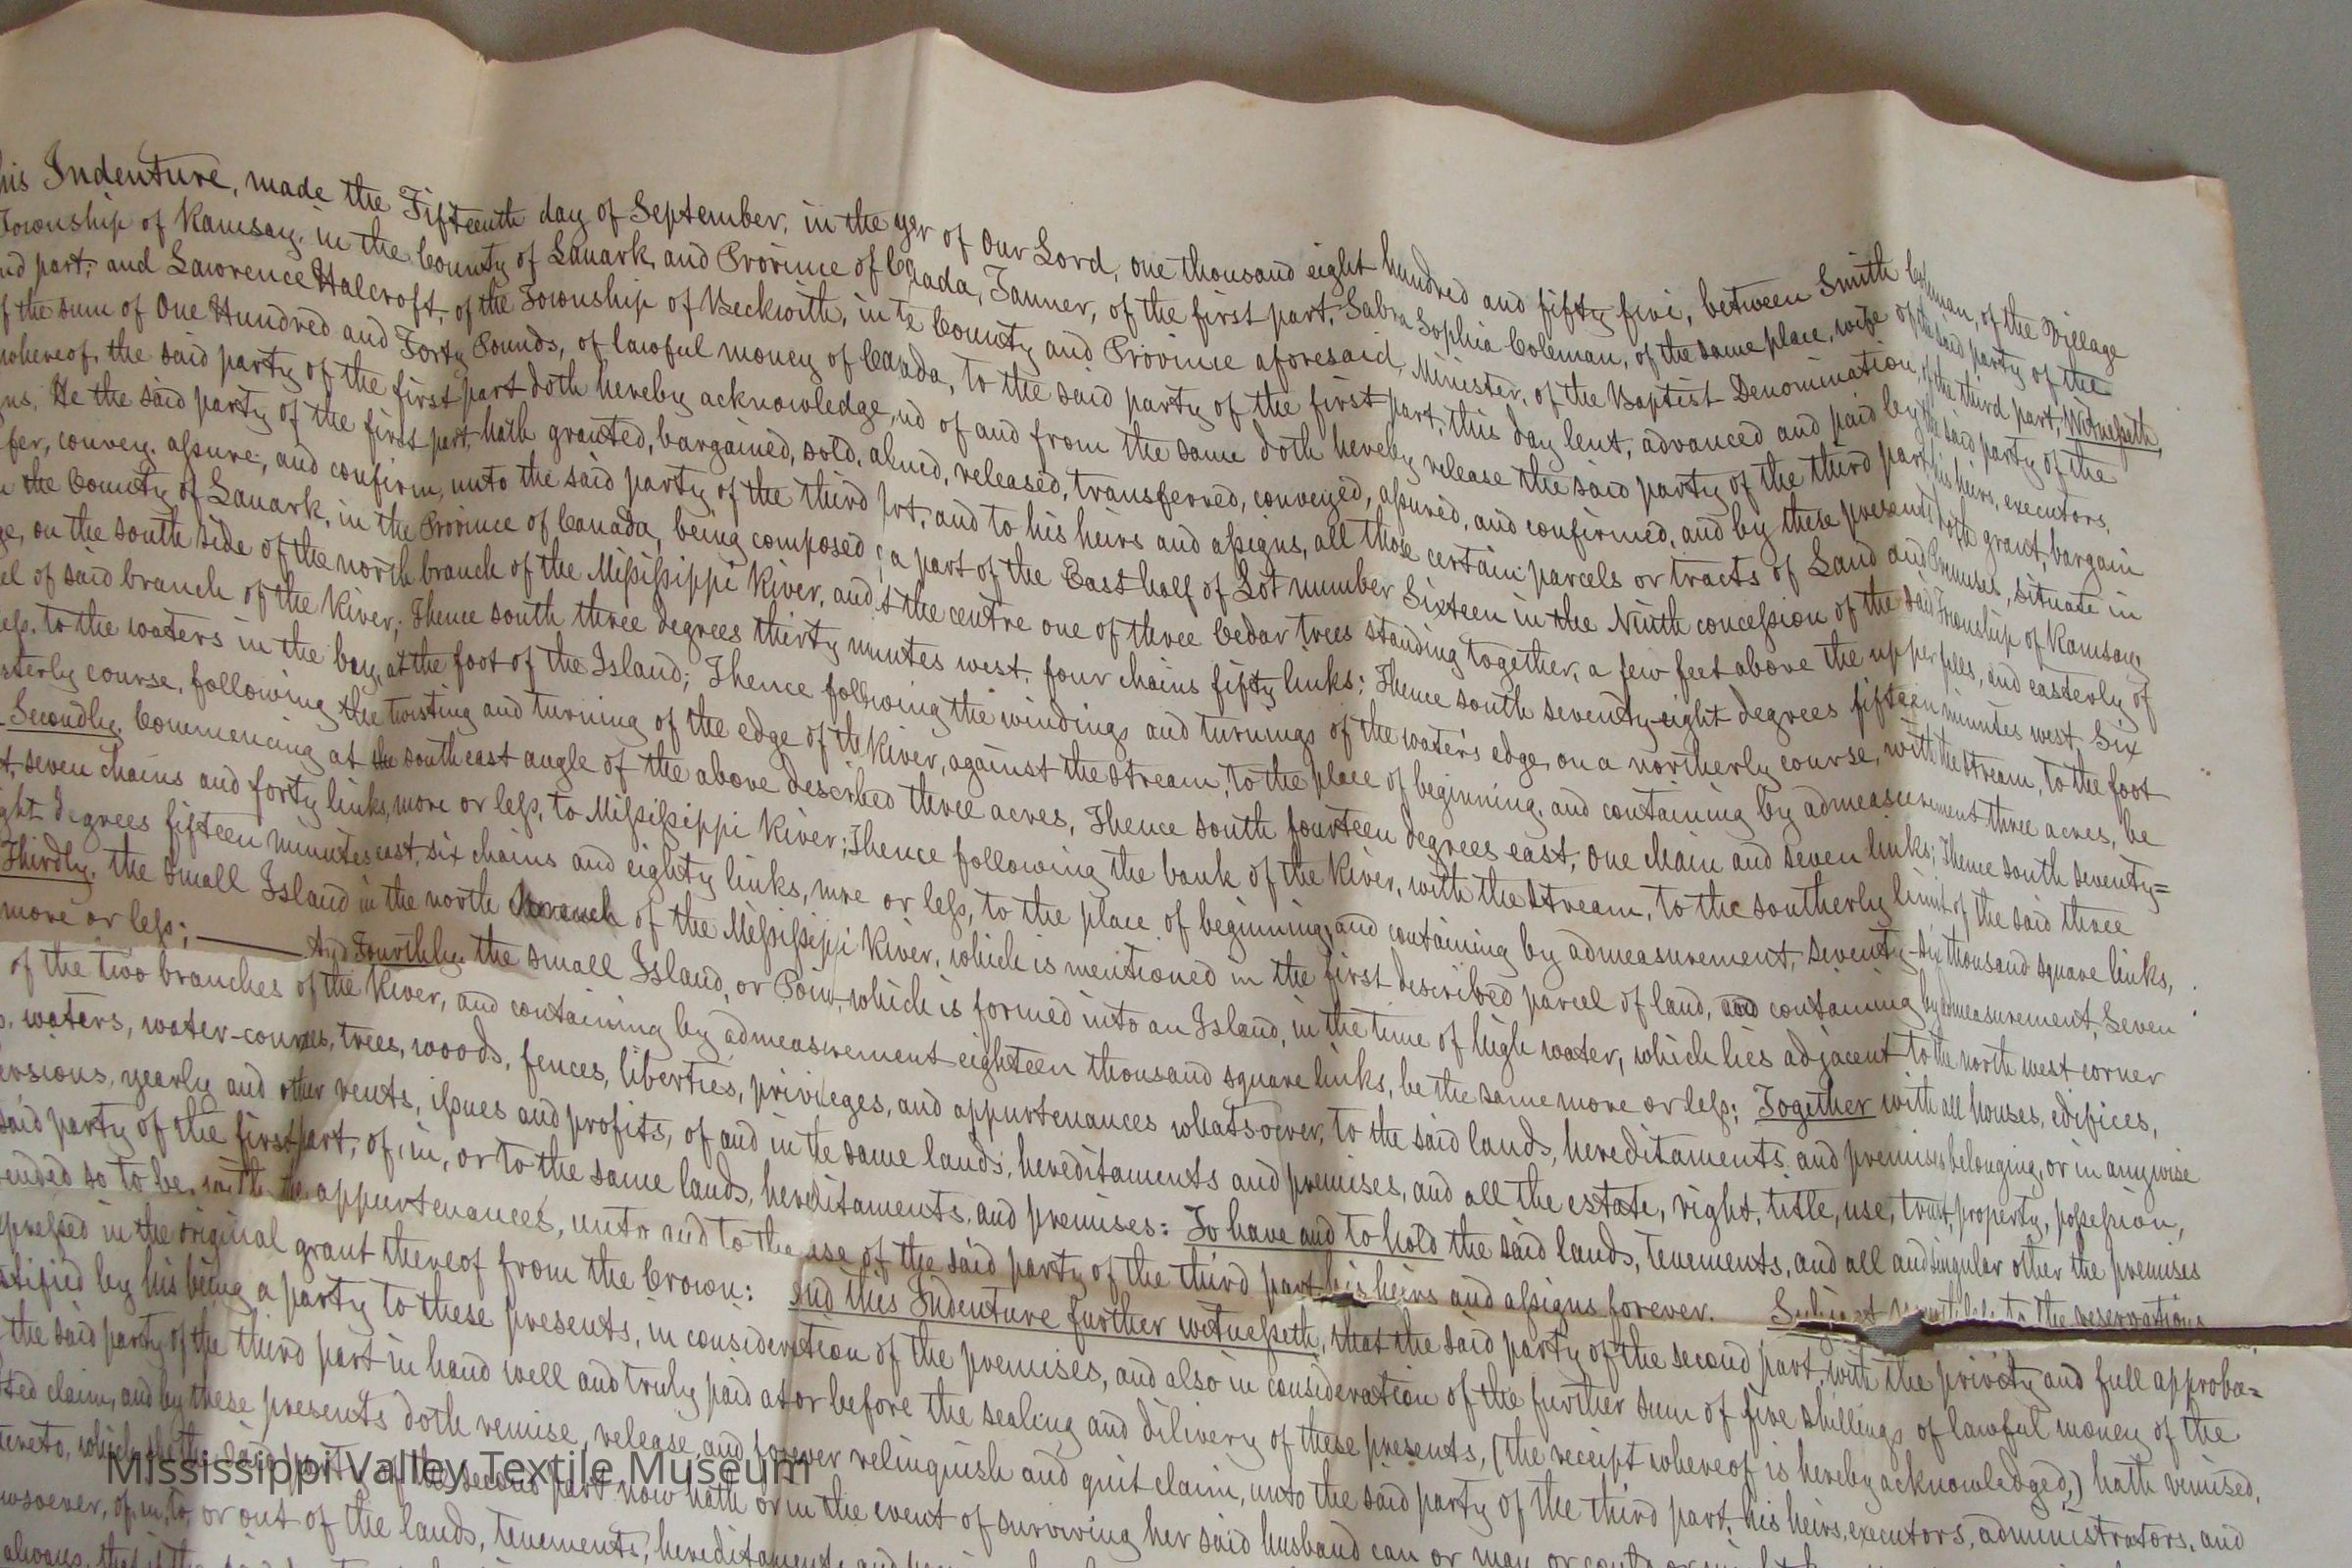 his Indenture, made the Fifteenth day of September, in the year of Our Lord, one thousand eight hundred and fifty five, between Smith Coleman, of the Village
Township of Ramsay, in the County of Lanark, and Province of Canada, Tanner, of the first part, Sabra Sophia Coleman, of the same place, wife of the said party of the
nd part, and Lawrence Halcroft, of the Township of Beckwith, in the County and Province aforesaid, Minister, of the Baptist Denomination, of the third part, Witnesseth,
f the sum of One Hundred and Forty Pounds, of lawful money of Canada, to the said party of the first part, this day lent, advanced and paid by the said party of the
whereof, the said party of the first part doth hereby acknowledge, and of and from the same doth hereby release the said party of the third part, his heirs, executors,
ns, He the said party of the first part, hath granted, bargained, sold, aliened, released, transferred, conveyed, assured, and confirmed, and by these presents doth grant, bargain
fer, convey, assure, and confirm, unto the said party of the third part, and to his heirs and assigns, all those certain parcels or tracts of Land and Premises, situate in
n the County of Lanark, in the Province of Canada, being composed of a part of the East half of Lot number Sixteen in the Ninth concession of the said Township of Ramsay,
ge, on the south side of the north branch of the Mississippi River, and at the centre one of three Cedar trees standing together, a few feet above the upper falls, and easterly of
el of said branch of the River; Thence south three degrees thirty minutes west, four chains fifty links; Thence south seventy-eight degrees fifteen minutes west, Six
ess, to the waters in the bay, at the foot of the Island; Thence following the windings and turnings of the water's edge, on a northerly course, with the stream, to the foot
sterly course, following the twisting and turning of the edge of the River, against the stream, to the place of beginning, and containing by admeasurement three acres, be
Secondly, Commencing at the south east angle of the above described three acres, Thence south fourteen degrees east, One Chain and seven links; Thence south seventy=
t, seven chains and forty links, more or less, to Mississippi River; Thence following the bank of the River, with the stream, to the southerly limit of the said three
ght degrees fifteen minutes east, six chains and eighty links, more or less, to the place of beginning, and containing by admeasurement, seventy-six thousand square links,
Thirdly, the small Island in the north branch of the Mississippi River, which is mentioned in the first described parcel of land, and containing by admeasurement, Seven
more or less; And Fourthly, the small Island, or Point, which is formed into an Island, in the time of high water, which lies adjacent to the north west corner
of the two branches of the River, and containing by admeasurement eighteen thousand square links, be the same more or less; Together with all houses, edifices,
s, waters, water-courses, trees, woods, fences, liberties, privileges, and appurtenances whatsoever, to the said lands, hereditaments and premises belonging, or in anywise
ersions, yearly and other rents, issues and profits, of and in the same lands, hereditaments and premises, and all the estate, right, title, use, trust, property, possession,
said party of the first part, of, in, or to the same lands, hereditaments, and premises: To have and to hold the said lands, tenements, and all and singular other the premises
ended so to be, with the appurtenances, unto and to the use of the said party of the third part his heirs and assigns forever. Subject nevertheless to the reservations
pressed in the original grant thereof from the Crown: And this Indenture further witnesseth, that the said party of the second part, with the privity and full approba=
stified by his being a party to these presents, in consideration of the premises, and also in consideration of the further sum of five shillings of lawful money of the
the said party of the third part in hand well and truly paid at or before the sealing and delivery of these presents, (the receipt whereof is hereby acknowledged,) hath remised,
ted claim, and by these presents doth remise, release, and forever relinquish and quit claim, unto the said party of the third part, his heirs, executors, administrators, and
ereto, which she the said party of the second part now hath or in the event of surviving her said husband can or may or
owsoever, of, in, to, or out of the lands, tenements, hereditaments and
always, that if the said
Mississippi Valley Textile Museum